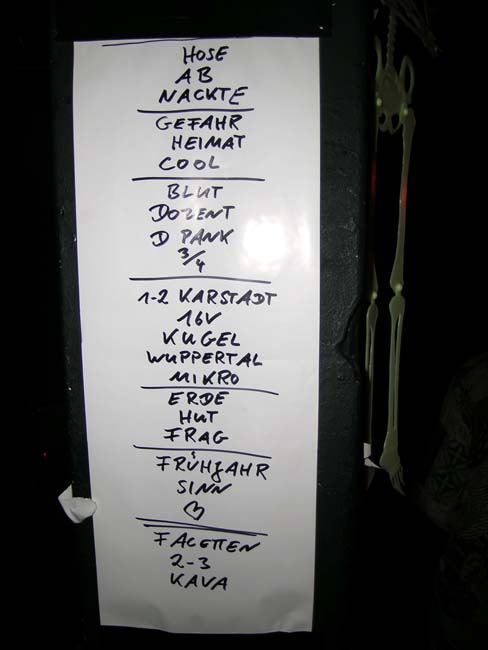 HOSE
AB
NACKTE
GEFAHR
HEIMAT
COOL
BLUT
DOZENT
D PANK
3/4
1-2 KARSTADT
16V
KUGEL
WUPPERTAL
MIKRO
ERDE
HUT
FRAG
FRÜHJAHR
SINN
♡
FACETTEN
2-3
KAVA